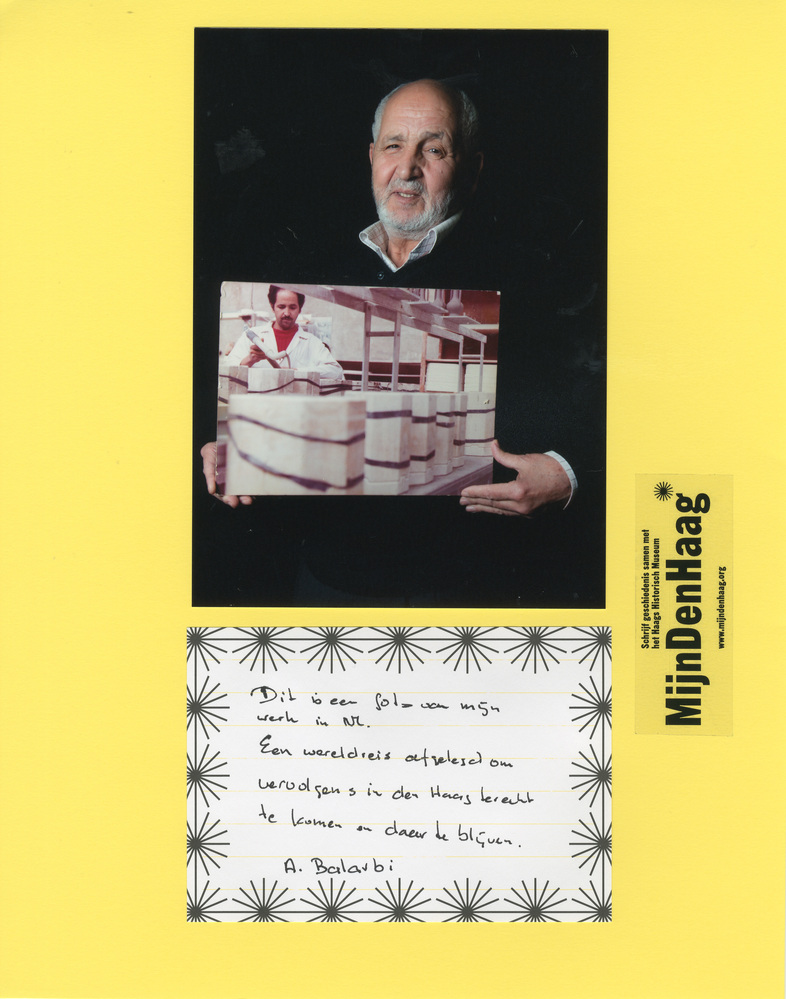 Dit is een foto van mijn
werk in NL.
Een wereldreis afgelegd om
vervolgens in den Haag terecht
te komen en daar te blijven.
A. Balarbi
Schrijf geschiedenis samen met
het Haags Historisch Museum
MijnDenHaag
www.mijndenhaag.org